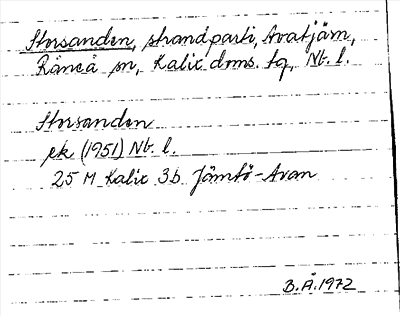 Storsanden, strandparti, Avatjärn,
Råneå sn, Kalix doms. tg, Nb. l.
Storsanden
ek (1951) Nb. l.
25 M Kalix 3b. Jämtö-Avan
B.Å.1972